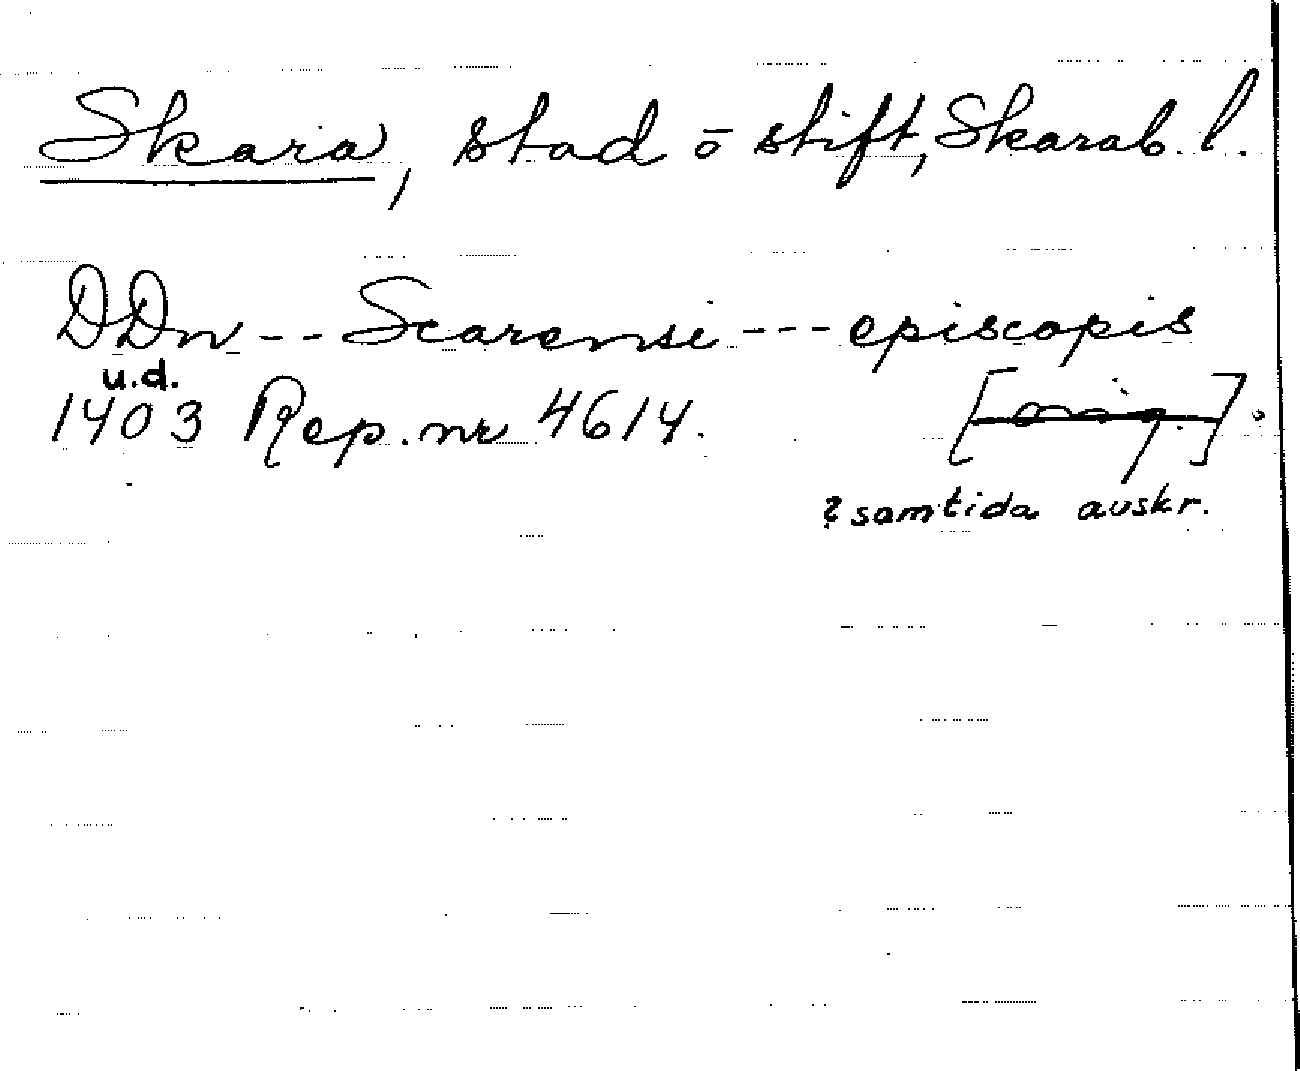 Skara, stad o stift, Skarab. l.
DDn --- Scarensi --- episcopis
u.d.
1403 Rep. nr 4614. [orig.].
? samtida avskr.